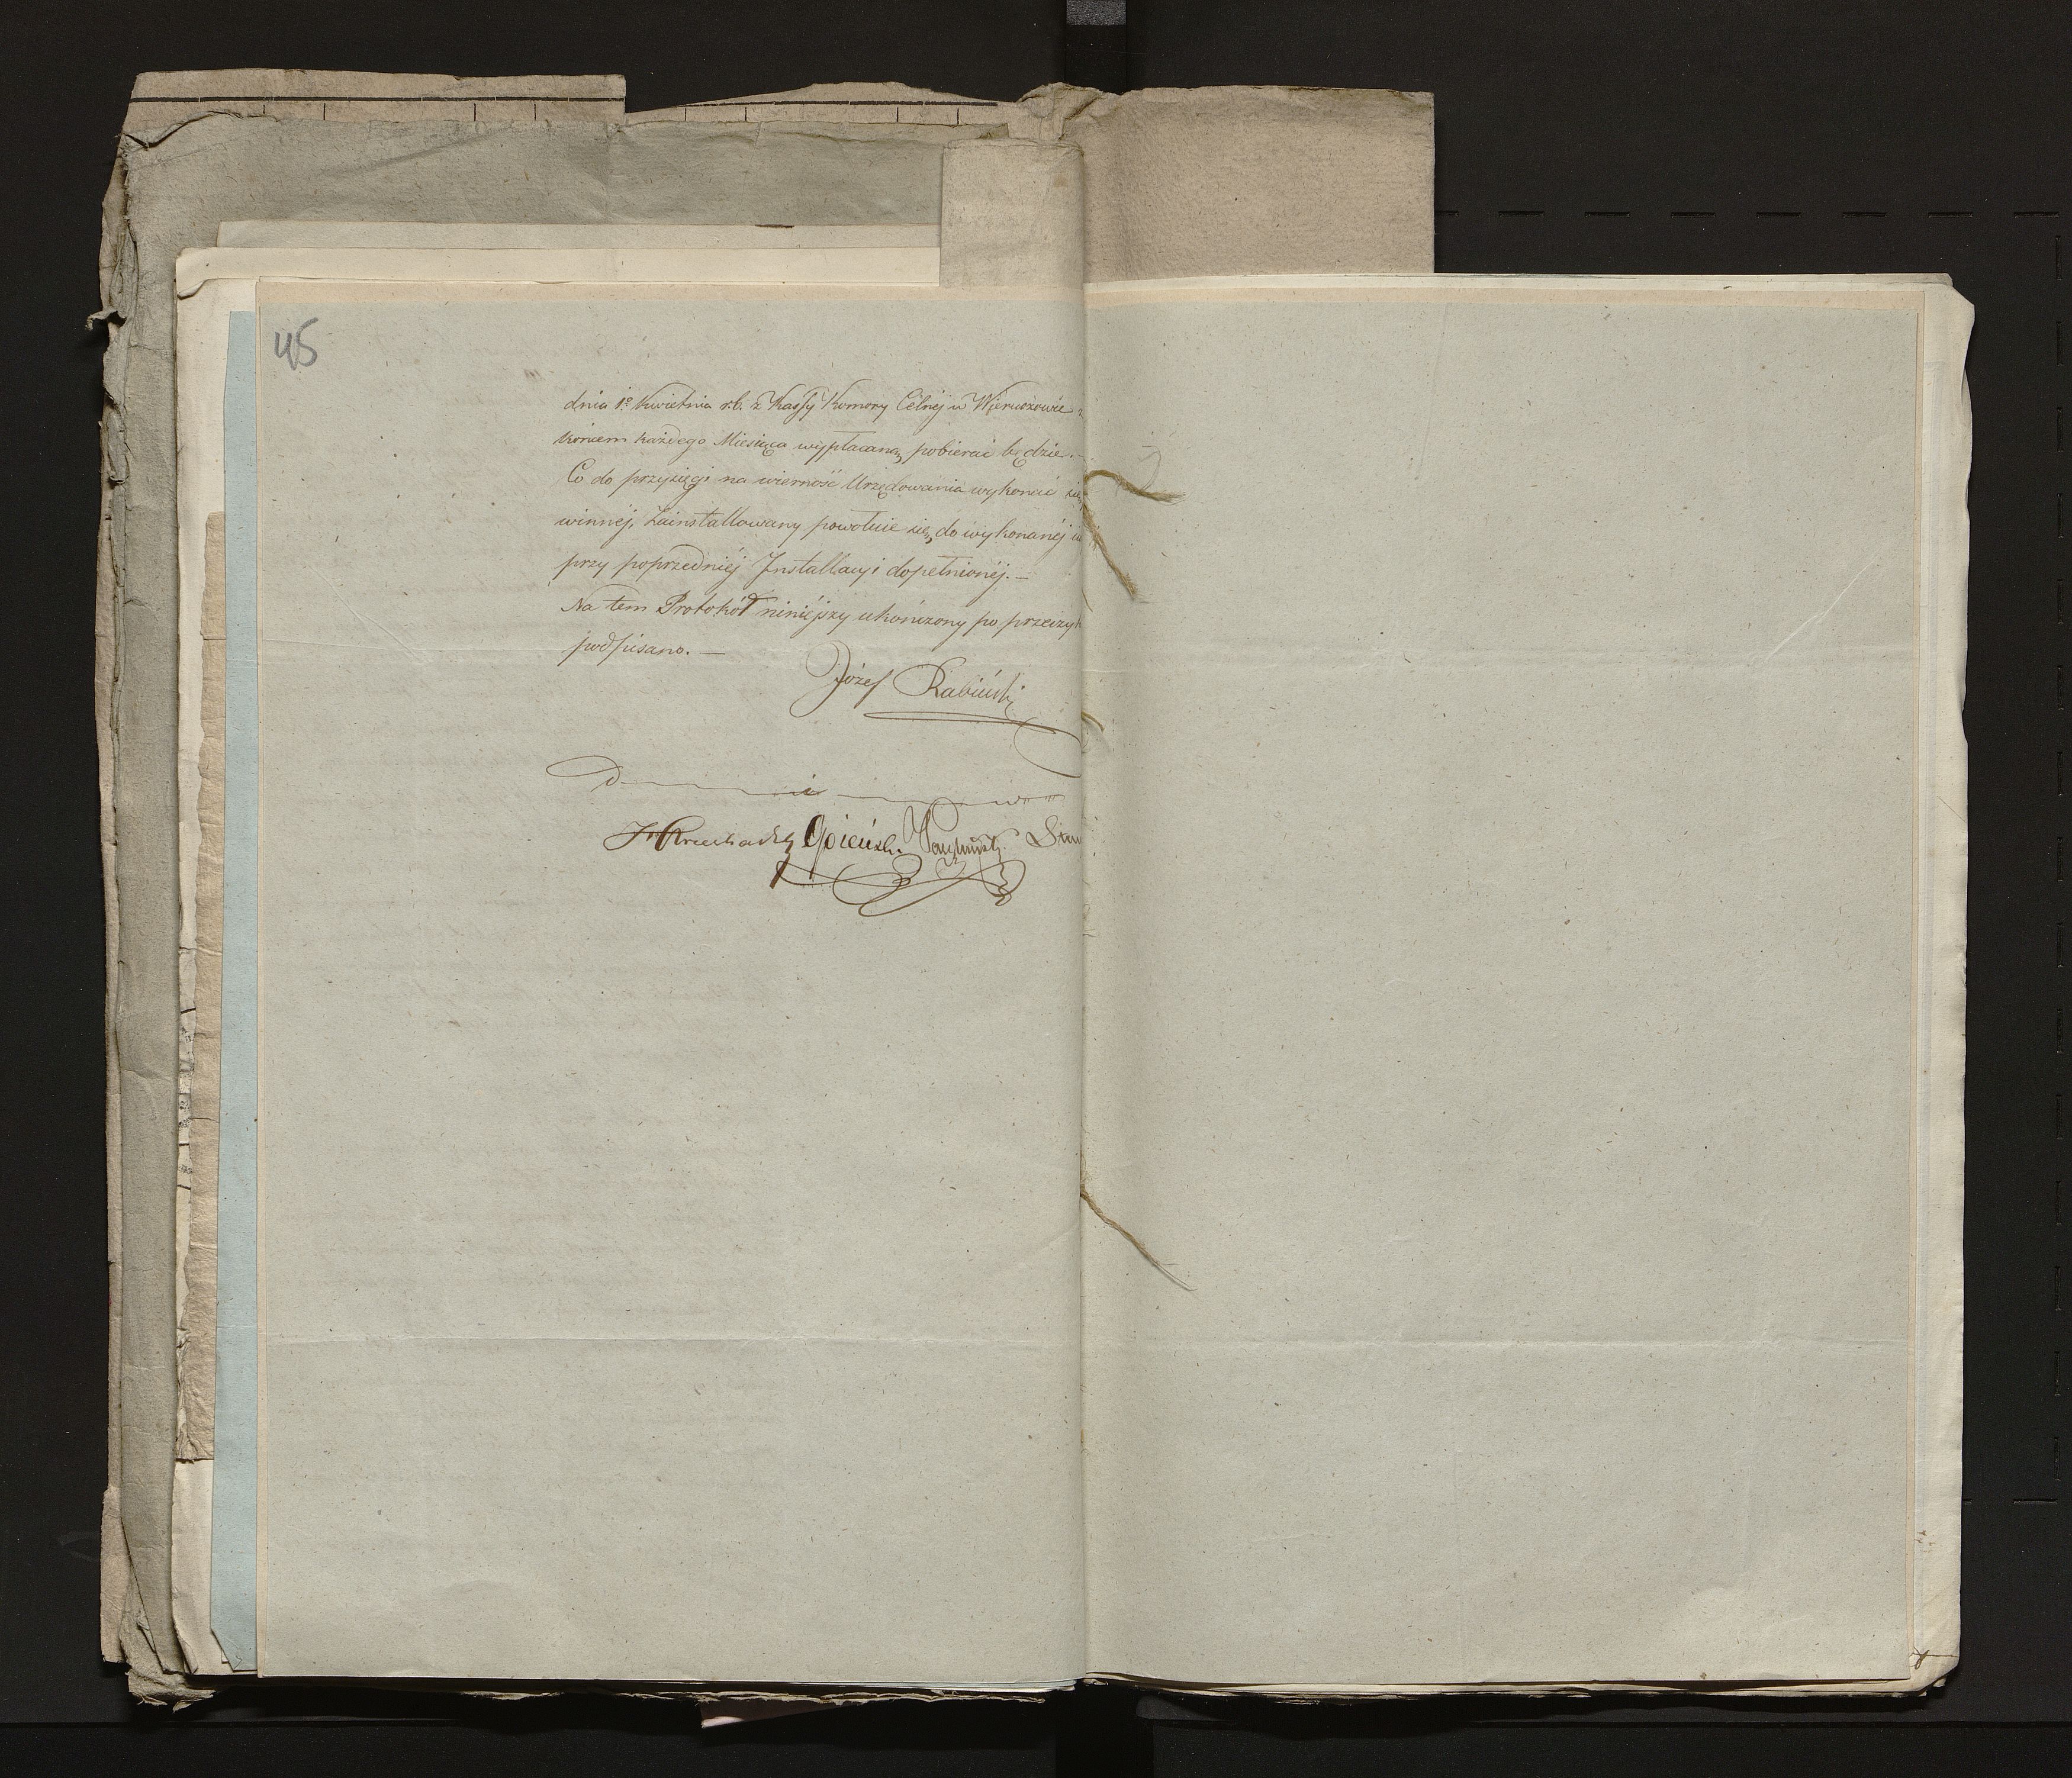 45
dnia 1º Kwietnia r.b. z Kassy Komory Celnéj w Wieruszowie z
końcem każdego Miesiąca wypłacaną pobierać będzie.—
Co do przysięgi na wierność Urzędowania wykonać się
winnéj, Zainstallowany powołuie się do wykonanéj iu
przy poprzedniéj Installacyi dopełnionéj.—
Na tem Protokół niniéjszy ukończony po przeczyt
podpisano.—
Józef Rabiński